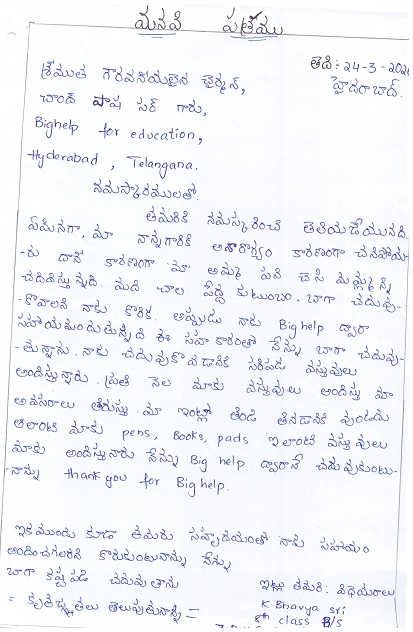 మనవి పత్రము
తేది:- 24-3-202
హైదరాబాద్.
శ్రీయుత గౌరవనీయులైన ఛైర్మన్,
చాంద్ పాష సర్ గారు,
Bighelp for education,
Hyderabad, Telangana.
నమస్కారములతో.
తమరికి నమస్కరించి తెలియజేయునది.
ఏమనగా, మా నాన్నగారికి అనారోగ్యం కారణంగా చనిపోయా
-రు దాని కారణంగా మా అమ్మ పని చేసి మమ్మల్ని
చదివిస్తున్నది. మది చాల పేద్ద కుటుంబం. బాగా చదువు-
-కోవాలని నాకు కోరిక. అప్పుడు నాకు Big help ద్వారా
సహాయమందుతున్నది ఈ సహకారంతో నేన్ను బాగా చదువు-
-తున్నాను. నాకు చదువుకోవడానికి సరిపడ వస్తువులు
అందిస్తున్నారు. ప్రతి నెల మాకు వస్తువులు అందిస్తు మా
అవసరాలు తీరుస్తు. మా ఇంట్లో తిండి తినడానికి వుండదు
అలాంటి మాకు pens, Books, pads ఇలాంటి వస్తువులు
మాకు అందిస్తునారు నేన్ను Big help ద్వారానే చదువుకుంటు-
-నాన్ను thank you for Big help.
ఇకముందు కూడా తమరు సహృదయంతో నాకు సహాయం
అందించగలరని కోరుకుంటున్నాను నేన్ను
బాగా కష్టపడి చదువుతాను
= కృతజ్ఞతలు తెలుపుతున్నాన్ను =
ఇట్లు తమరి: విధేయరాలు
K. Bhavya sri
8th class B/S